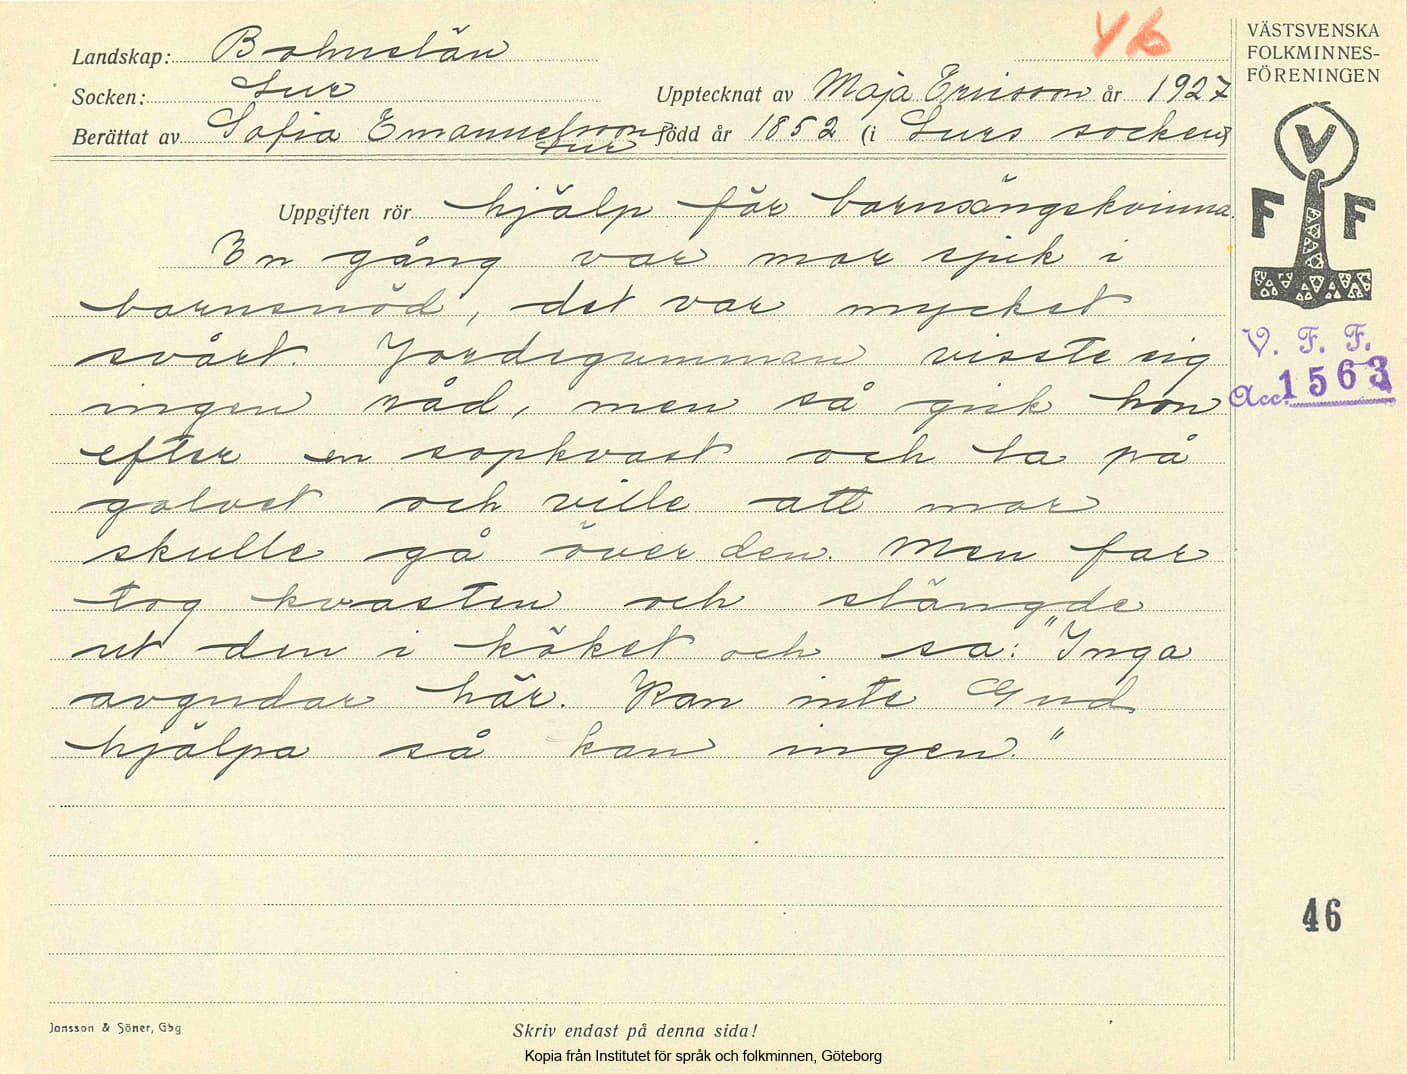 VƂ
Landskap: Bohuslän
Socken: Lur
Upptecknat av Maja Ericson år 1927
Berättat av Sofia Emanuelsson, Lur född år 1852 (i Lurs socken)
Uppgiften rör hjälp för barnsängskvinna.
En gång var mor sjuk i
barnsnöd, det var mycket
svårt. Jordegumman visste sig
ingen råd, men så gick hon
efter en sopkvast och la på
golvet och ville att mor
skulle gå över den. Men far
tog kvasten och slängde
ut den i köket och sa: "Inga
avgudar här. Kan inte Gud
hjälpa så kan ingen."
VÄSTSVENSKA
FOLKMINNES-
FÖRENINGEN
V
F F
V. F. F.
Acc. 1563
46
Jonsson & Söner, Gbg
Skriv endast på denna sida!
Kopia från Institutet för språk och folkminnen, Göteborg